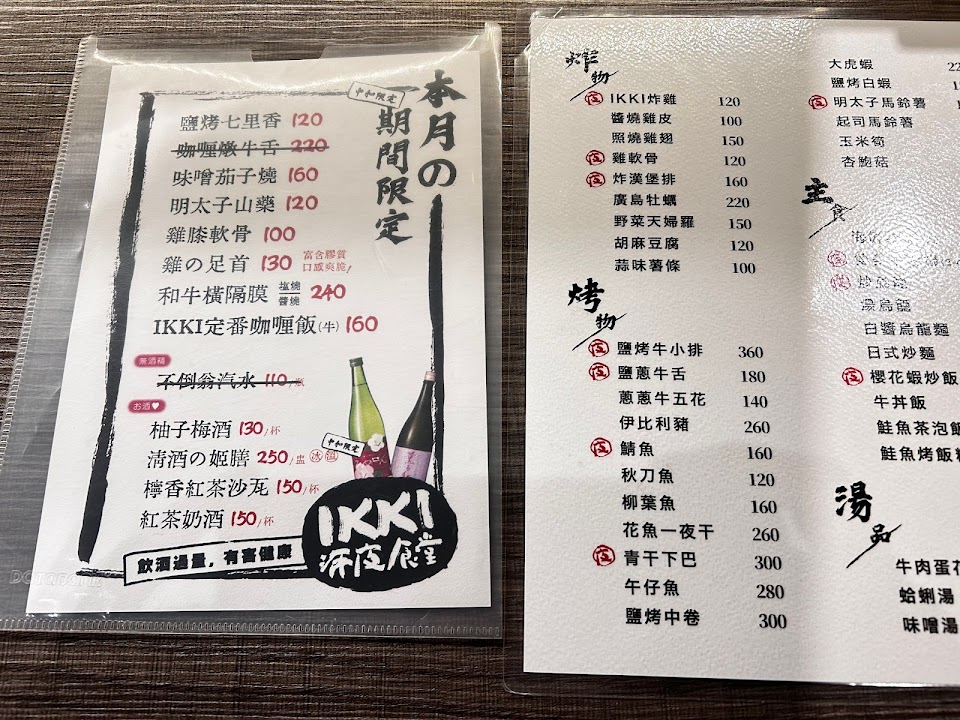 本月の
期間限定
中和限定
鹽烤七里香 120
咖喱燉牛舌 220
味噌茄子燒 160
明太子山藥 120
雞膝軟骨 100
雞の足首 130 富含膠質 口感爽脆!
和牛橫隔膜 塩燒 醬燒 240
IKKI定番咖喱飯(牛) 160
無酒精
不倒翁汽水 110
お酒♥
柚子梅酒 130/杯
清酒の姬膳 250/盅 冰 溫
檸香紅茶沙瓦 150/杯
紅茶奶酒 150/杯
中和限定
飲酒過量，有害健康
IKKI
深夜食堂
炸物
夜 IKKI炸雞 120
醬燒雞皮 100
照燒雞翅 150
夜 雞軟骨 120
夜 炸漢堡排 160
廣島牡蠣 220
野菜天婦羅 150
胡麻豆腐 120
蒜味薯條 100
烤物
夜 鹽烤牛小排 360
夜 鹽蔥牛舌 180
蔥蔥牛五花 140
伊比利豬 260
夜 鯖魚 160
秋刀魚 120
柳葉魚 160
花魚一夜干 260
夜 青干下巴 300
午仔魚 280
鹽烤中卷 300
大虎蝦
鹽烤白蝦
夜 明太子馬鈴薯
起司馬鈴薯
玉米筍
杏鮑菇
主食
湯烏龍
白醬烏龍麵
日式炒麵
夜 櫻花蝦炒飯
牛丼飯
鮭魚茶泡飯
鮭魚烤飯糰
湯品
牛肉蛋花
蛤蜊湯
味噌湯